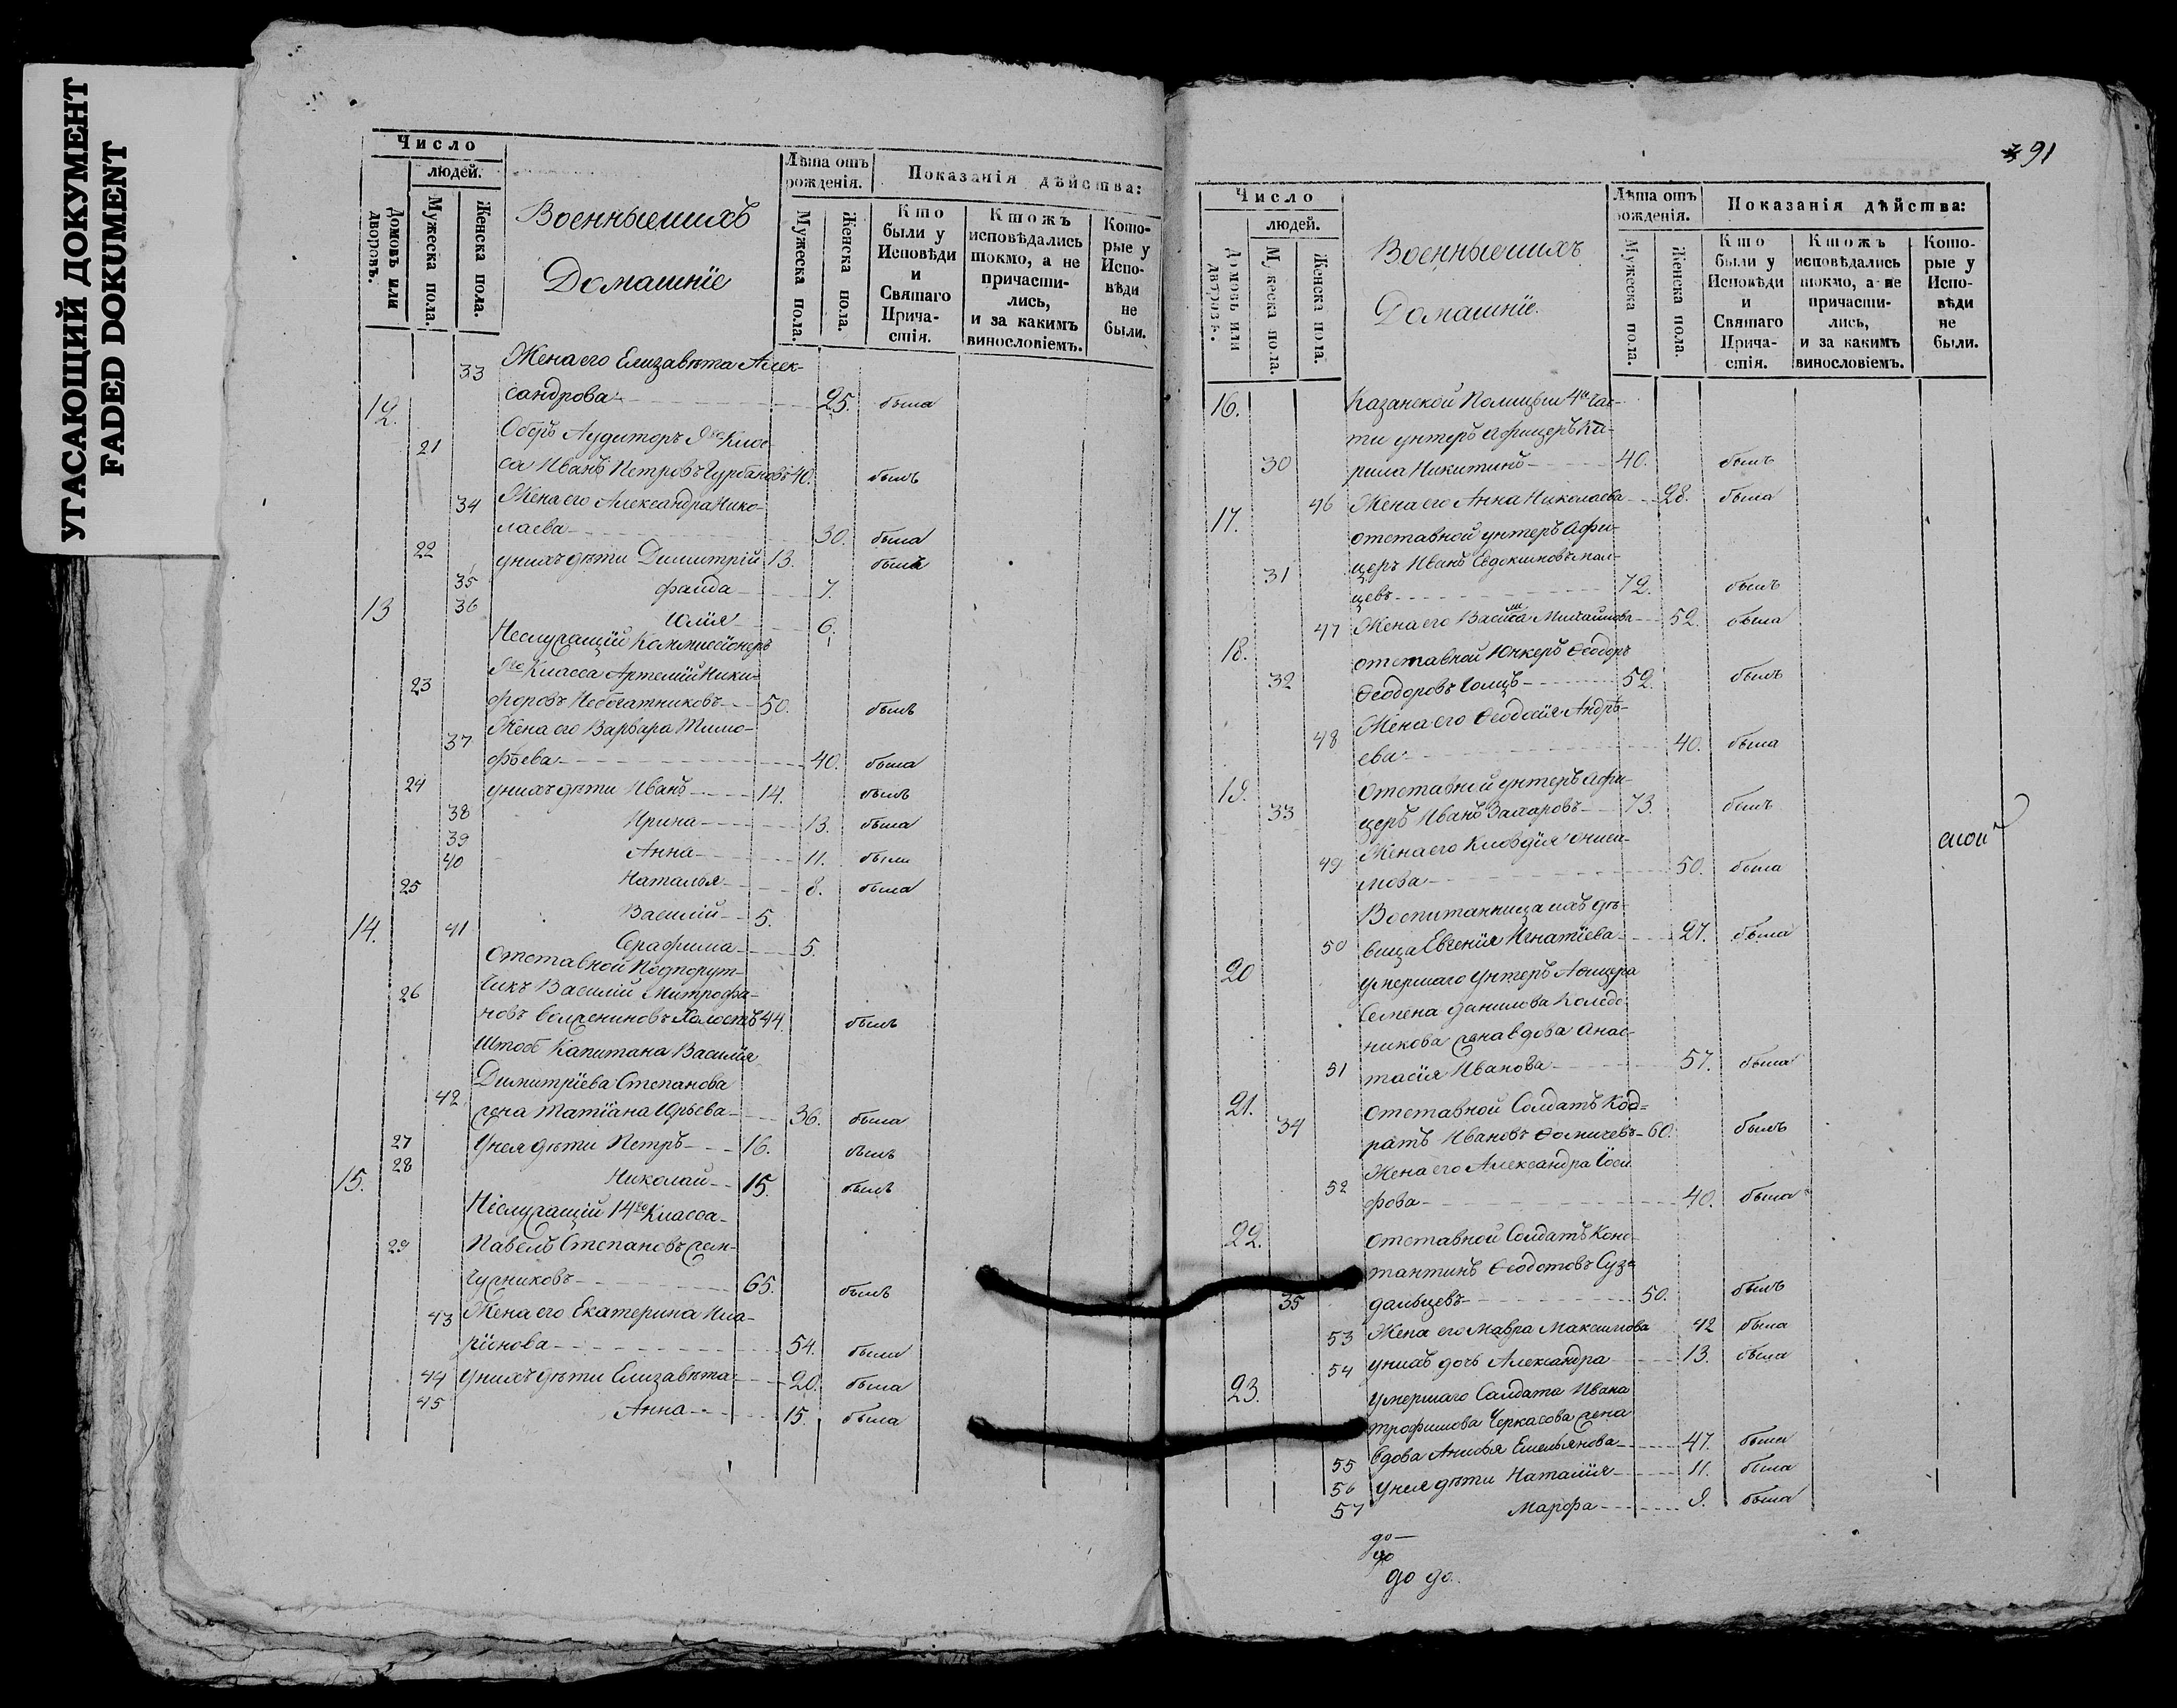 УГАСАЮЩИЙ ДОКУМЕНТ
FADED DOKUMENT
Число
людей.
Домовъ или дворовъ.
Мужеска пола.
Женска пола.
Военные ихъ
Домашніе
Лѣта отъ рожденія.
Мужеска пола.
Женска пола.
Показанія дѣйства:
Кто были у Исповѣди и Святаго Прича-стія.
Ктожъ исповѣдались токмо, а не причасти-лись, и за какимъ винословіемъ.
Кото-рые у Испо-вѣди не были.
33 Жена его Елизавѣта Алек-
сандрова 25. была
12.
Оберъ Аудиторъ 9го Клас-
21 са Иванъ Петровъ 40. былъ
34 Жена его Александра Нико-
лаева 30. была
22 у нихъ дѣти Димитрій 13. былъ
35 7.
36 Юлія 6.
13 Неслужащій Коммиссіонеръ
Класса Артемій Ники-
23 форовъ 50. былъ
37 Жена его Варвара Тимо-
фѣева 40. была
24 у нихъ дѣти Иванъ 14. былъ
38 Ирина 13. была
39 Анна 11. была
40 Наталья 8. была
25 Василій 5.
41 Серафима 5.
14. Отставной Подпорут-
26 чикъ Василій Митрофа-
новъ Холостъ 44. былъ
Штабс Капитана Василія
Димитріева Степанова
42 жена Татіана Юрьева 36. была
27 У нея дѣти Петръ 16. былъ
28 Николай 15. былъ
15. Неслужащій 14го Класса
29 Павелъ Степановъ Жем-
чужниковъ 65. былъ
43 Жена его Екатерина Ила-
ріонова 54. была
44 У нихъ дѣти Елизавѣта 20. была
45 Анна 15. была
91
Число
людей.
Домовъ или дворовъ.
Мужеска пола.
Женска пола.
Военные ихъ
Домашніе.
Лѣта отъ рожденія.
Мужеска пола.
Женска пола.
Показанія дѣйства:
Кто были у Исповѣди и Святаго Прича-стія.
Ктожъ исповѣдались токмо, а не причасти-лись, и за какимъ винословіемъ.
Кото-рые у Испо-вѣди не были.
16. Казанской Полиціи 4й час-
ти унтеръ афицеръ Ки-
30 рила Никитинъ 40. былъ
46 Жена его Анна Николаева 28. была
17. отставной унтеръ Афи-
31 церъ Иванъ Евдокимовъ Пал-
цевъ 72. былъ
47 Жена его Василиса Михайлова 52. была
18. отставной Юнкеръ Ѳеодоръ
32 Ѳеодоровъ 52. былъ
48 Жена его Ѳеодосія Андрѣ-
ева 40. была
19. Отставной унтеръ афи-
33 церъ Иванъ Захаровъ 73. былъ
49 Жена его Клавдія Ониси-
мова 50. была
Воспитанница ихъ дѣ-
50 вица Евгенія Игнатіева 27. была
20 умершаго Унтеръ Афицера
Семена Данилова Колодо-
никова жена вдова Анас-
51 тасія Иванова 57. была
21. отставной Солдатъ Код-
34 ратъ Ивановъ 60. былъ
52 Жена его Александра Іоси-
фова 40. была
22. отставной Солдатъ Конс-
тантинъ Ѳеодотовъ Суз-
35 дальцевъ 50. былъ
53 Жена его Мавра Максимова 42 была
54 у нихъ дочь Александра 13. была
23. Умершаго Салдата Ивана
Трофимова Черкасова жена
55 вдова Анисья Емельянова 47. была
56 У нея дѣти Наталія 11. была
57 Марфа 9. была
до
до
до до.